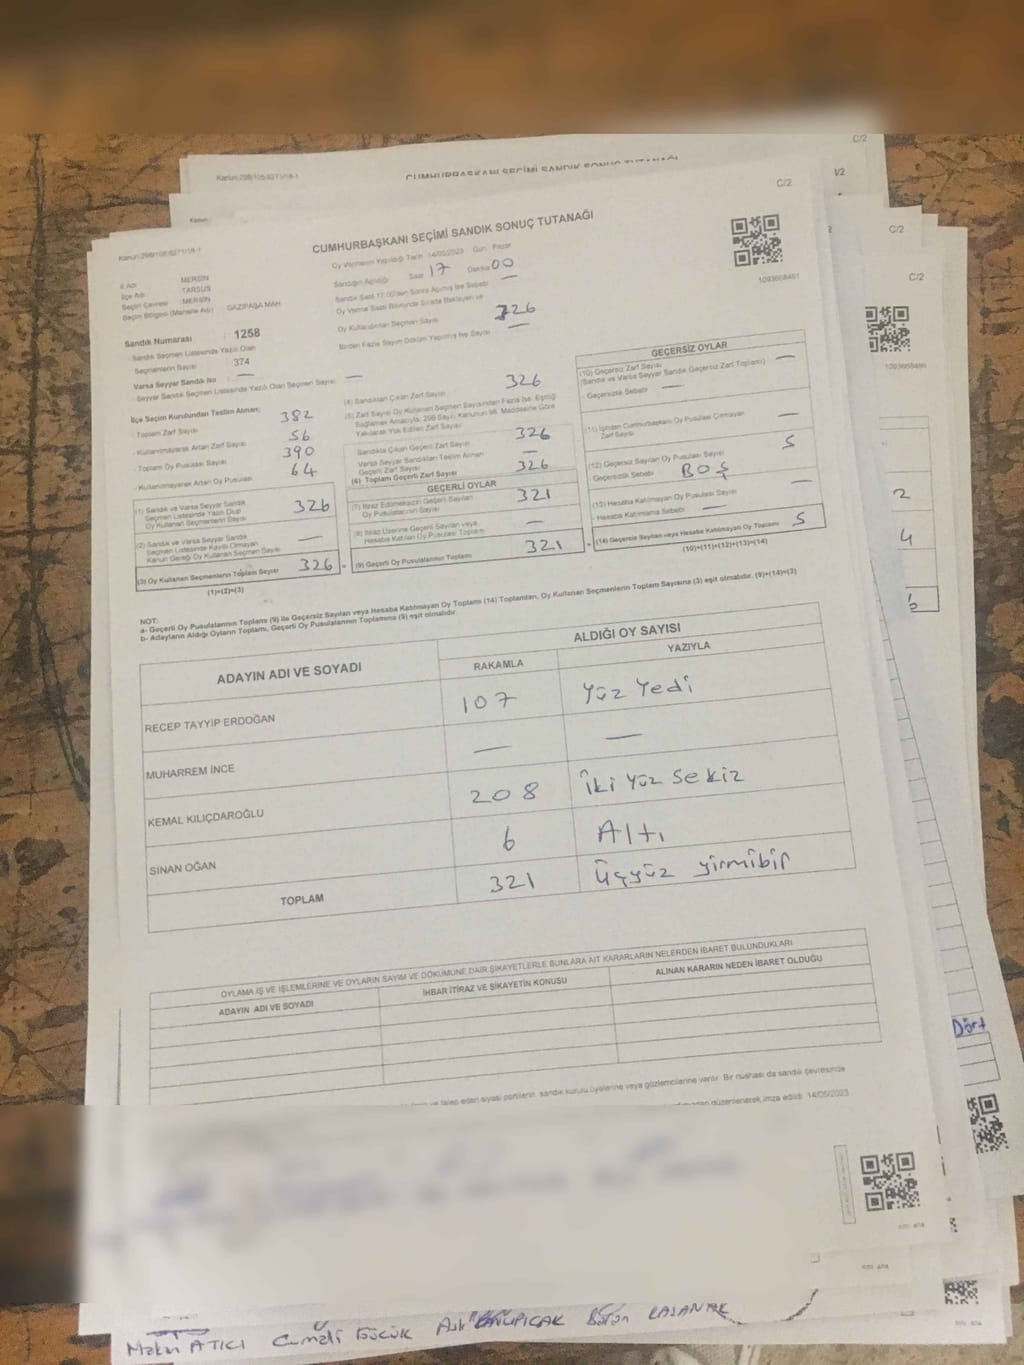 CUMHURBAŞKANI SEÇİMİ SANDIK SONUÇ TUTANAĞI
C/2
C/2
C/2
C/2
Kanun:298/105:6271/18-1
CUMHURBAŞKANI SEÇİMİ SANDIK SONUÇ TUTANAĞI
Oy Vermenin Yapıldığı Tarih :14/05/2023 Gün: Pazar
Sandığın Açıldığı Saat 17 Dakika 00
İl Adı : MERSİN
İlçe Adı : TARSUS
Seçim Çevresi : MERSİN
Seçim Bölgesi (Mahalle Adı) : GAZİPAŞA MAH
Sandık Saat 17:00'den Sonra Açılmış İse Sebebi —
Oy Verme Saati Bitiminde Sırada Bekleyen ve
Oy Kullandırılan Seçmen Sayısı 326
Birden Fazla Sayım Döküm Yapılmış İse Sayısı —
Sandık Numarası : 1258
Sandık Seçmen Listesinde Yazılı Olan
Seçmenlerin Sayısı : 374
Varsa Seyyar Sandık No : —
- Seyyar Sandık Seçmen Listesinde Yazılı Olan Seçmen Sayısı : —
İlçe Seçim Kurulundan Teslim Alınan;
- Toplam Zarf Sayısı 382
- Kullanılmayarak Artan Zarf Sayısı 56
- Toplam Oy Pusulası Sayısı 390
- Kullanılmayarak Artan Oy Pusulası 64
(1) Sandık ve Varsa Seyyar Sandık
Seçmen Listesinde Yazılı Olup
Oy Kullanan Seçmenlerin Sayısı 326
(2) Sandık ve Varsa Seyyar Sandık
Seçmen Listesinde Kayıtlı Olmayan
Kanun Gereği Oy Kullanan Seçmen Sayısı —
(3) Oy Kullanan Seçmenlerin Toplam Sayısı 326
(1)+(2)=(3)
(4) Sandıktan Çıkan Zarf Sayısı 326
(5) Zarf Sayısı Oy Kullanan Seçmen Sayısından Fazla İse, Eşitliği
Sağlamak Amacıyla, 298 Sayılı Kanunun 98. Maddesine Göre
Yakılarak Yok Edilen Zarf Sayısı
Sandıkta Çıkan Geçerli Zarf Sayısı 326
Varsa Seyyar Sandıktan Teslim Alınan
Geçerli Zarf Sayısı —
(6) Toplam Geçerli Zarf Sayısı 326
GEÇERLİ OYLAR
(7) İtiraz Edilmeksizin Geçerli Sayılan
Oy Pusulalarının Sayısı 321
(8) İtiraz Üzerine Geçerli Sayılan veya
Hesaba Katılan Oy Pusulası Toplamı —
(9) Geçerli Oy Pusulalarının Toplamı 321
GEÇERSİZ OYLAR
(10) Geçersiz Zarf Sayısı
(Sandık ve Varsa Seyyar Sandık Geçersiz Zarf Toplamı) —
- Geçersizlik Sebebi : —
(11) İçinden Cumhurbaşkanı Oy Pusulası Çıkmayan
Zarf Sayısı —
(12) Geçersiz Sayılan Oy Pusulası Sayısı 5
Geçersizlik Sebebi : BOŞ
(13) Hesaba Katılmayan Oy Pusulası Sayısı —
- Hesaba Katılmama Sebebi : —
(14) Geçersiz Sayılan veya Hesaba Katılmayan Oy Toplamı 5
(10)+(11)+(12)+(13)=(14)
NOT:
a- Geçerli Oy Pusulalarının Toplamı (9) ile Geçersiz Sayılan veya Hesaba Katılmayan Oy Toplamı (14) Toplamları, Oy Kullanan Seçmenlerin Toplam Sayısına (3) eşit olmalıdır. (9)+(14)=(3)
b- Adayların Aldığı Oyların Toplamı, Geçerli Oy Pusulalarının Toplamına (9) eşit olmalıdır.
ADAYIN ADI VE SOYADI
ALDIĞI OY SAYISI
RAKAMLA
YAZIYLA
RECEP TAYYIP ERDOĞAN 107 Yüz Yedi
MUHARREM İNCE — —
KEMAL KILIÇDAROĞLU 208 İki Yüz Sekiz
SİNAN OĞAN 6 Altı
TOPLAM 321 Üçyüz yirmibir
OYLAMA İŞ VE İŞLEMLERİNE VE OYLARIN SAYIM VE DÖKÜMÜNE DAİR ŞİKAYETLERLE BUNLARA AİT KARARLARIN NELERDEN İBARET BULUNDUKLARI
ADAYIN ADI VE SOYADI
İHBAR İTİRAZ VE ŞİKAYETİN KONUSU
ALINAN KARARIN NEDEN İBARET OLDUĞU
talep eden siyasi partilerin, sandık kurulu üyelerine veya gözlemcilerine verilir. Bir nüshası da sandık çevresinde
düzenlenerek imza edildi. 14/05/2023
2
4
Dört
ATICI